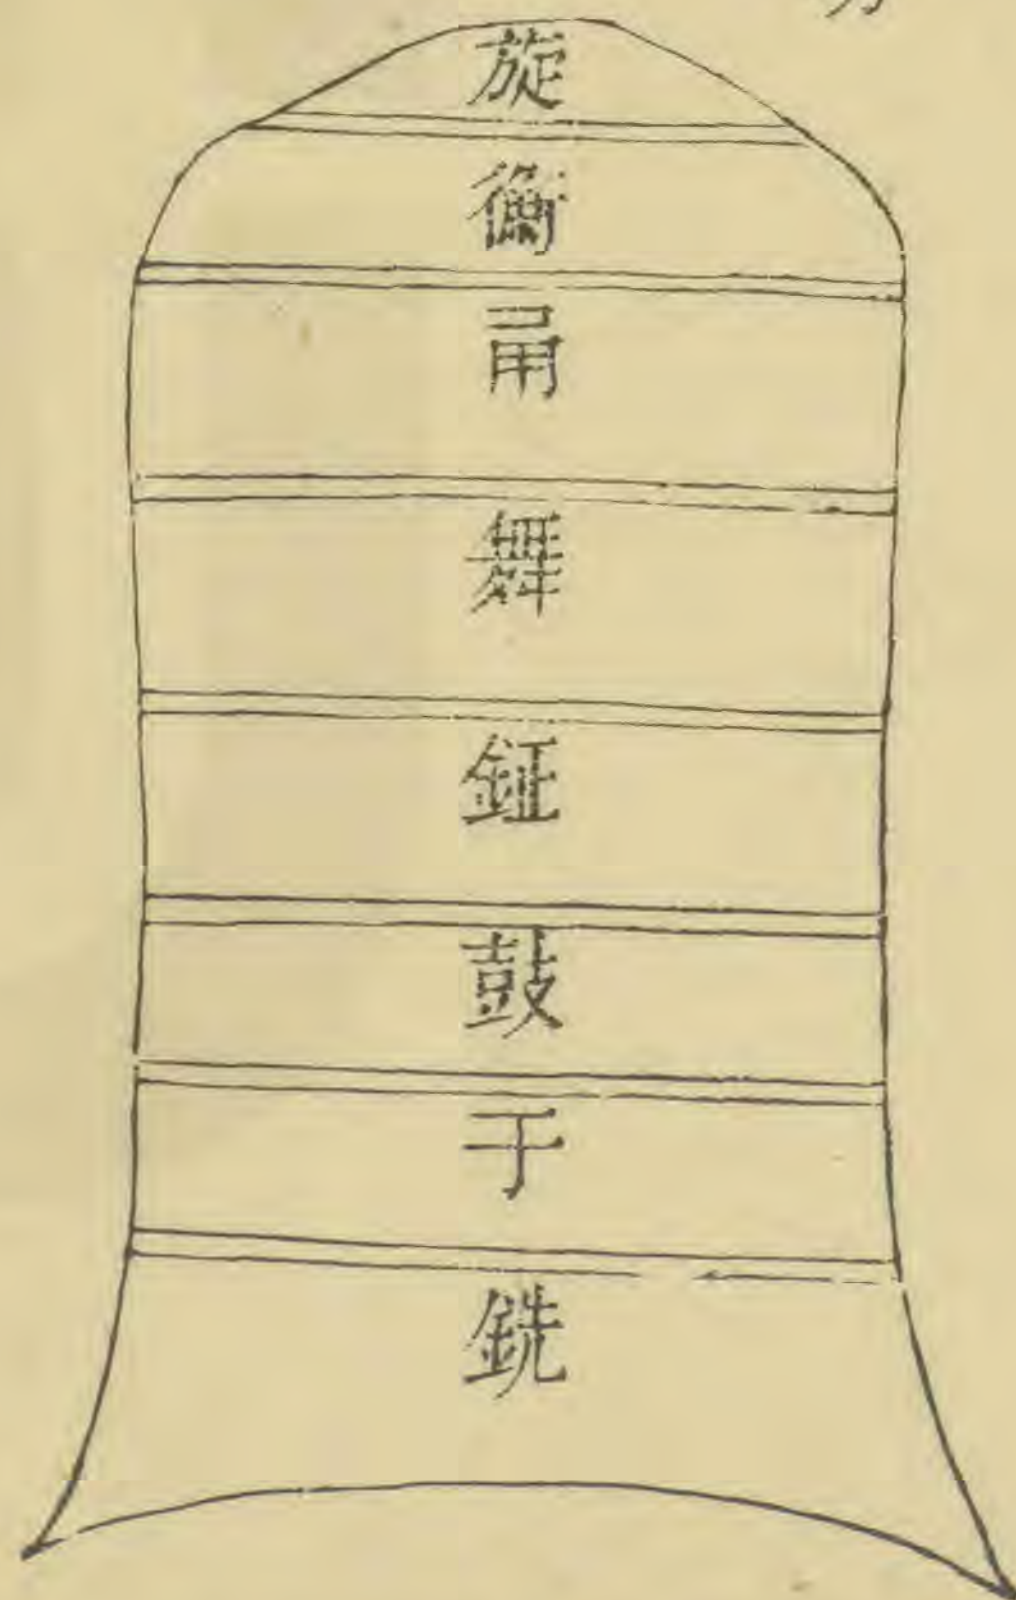 旋
衡
甬
舞
鉦
鼓
于
銑